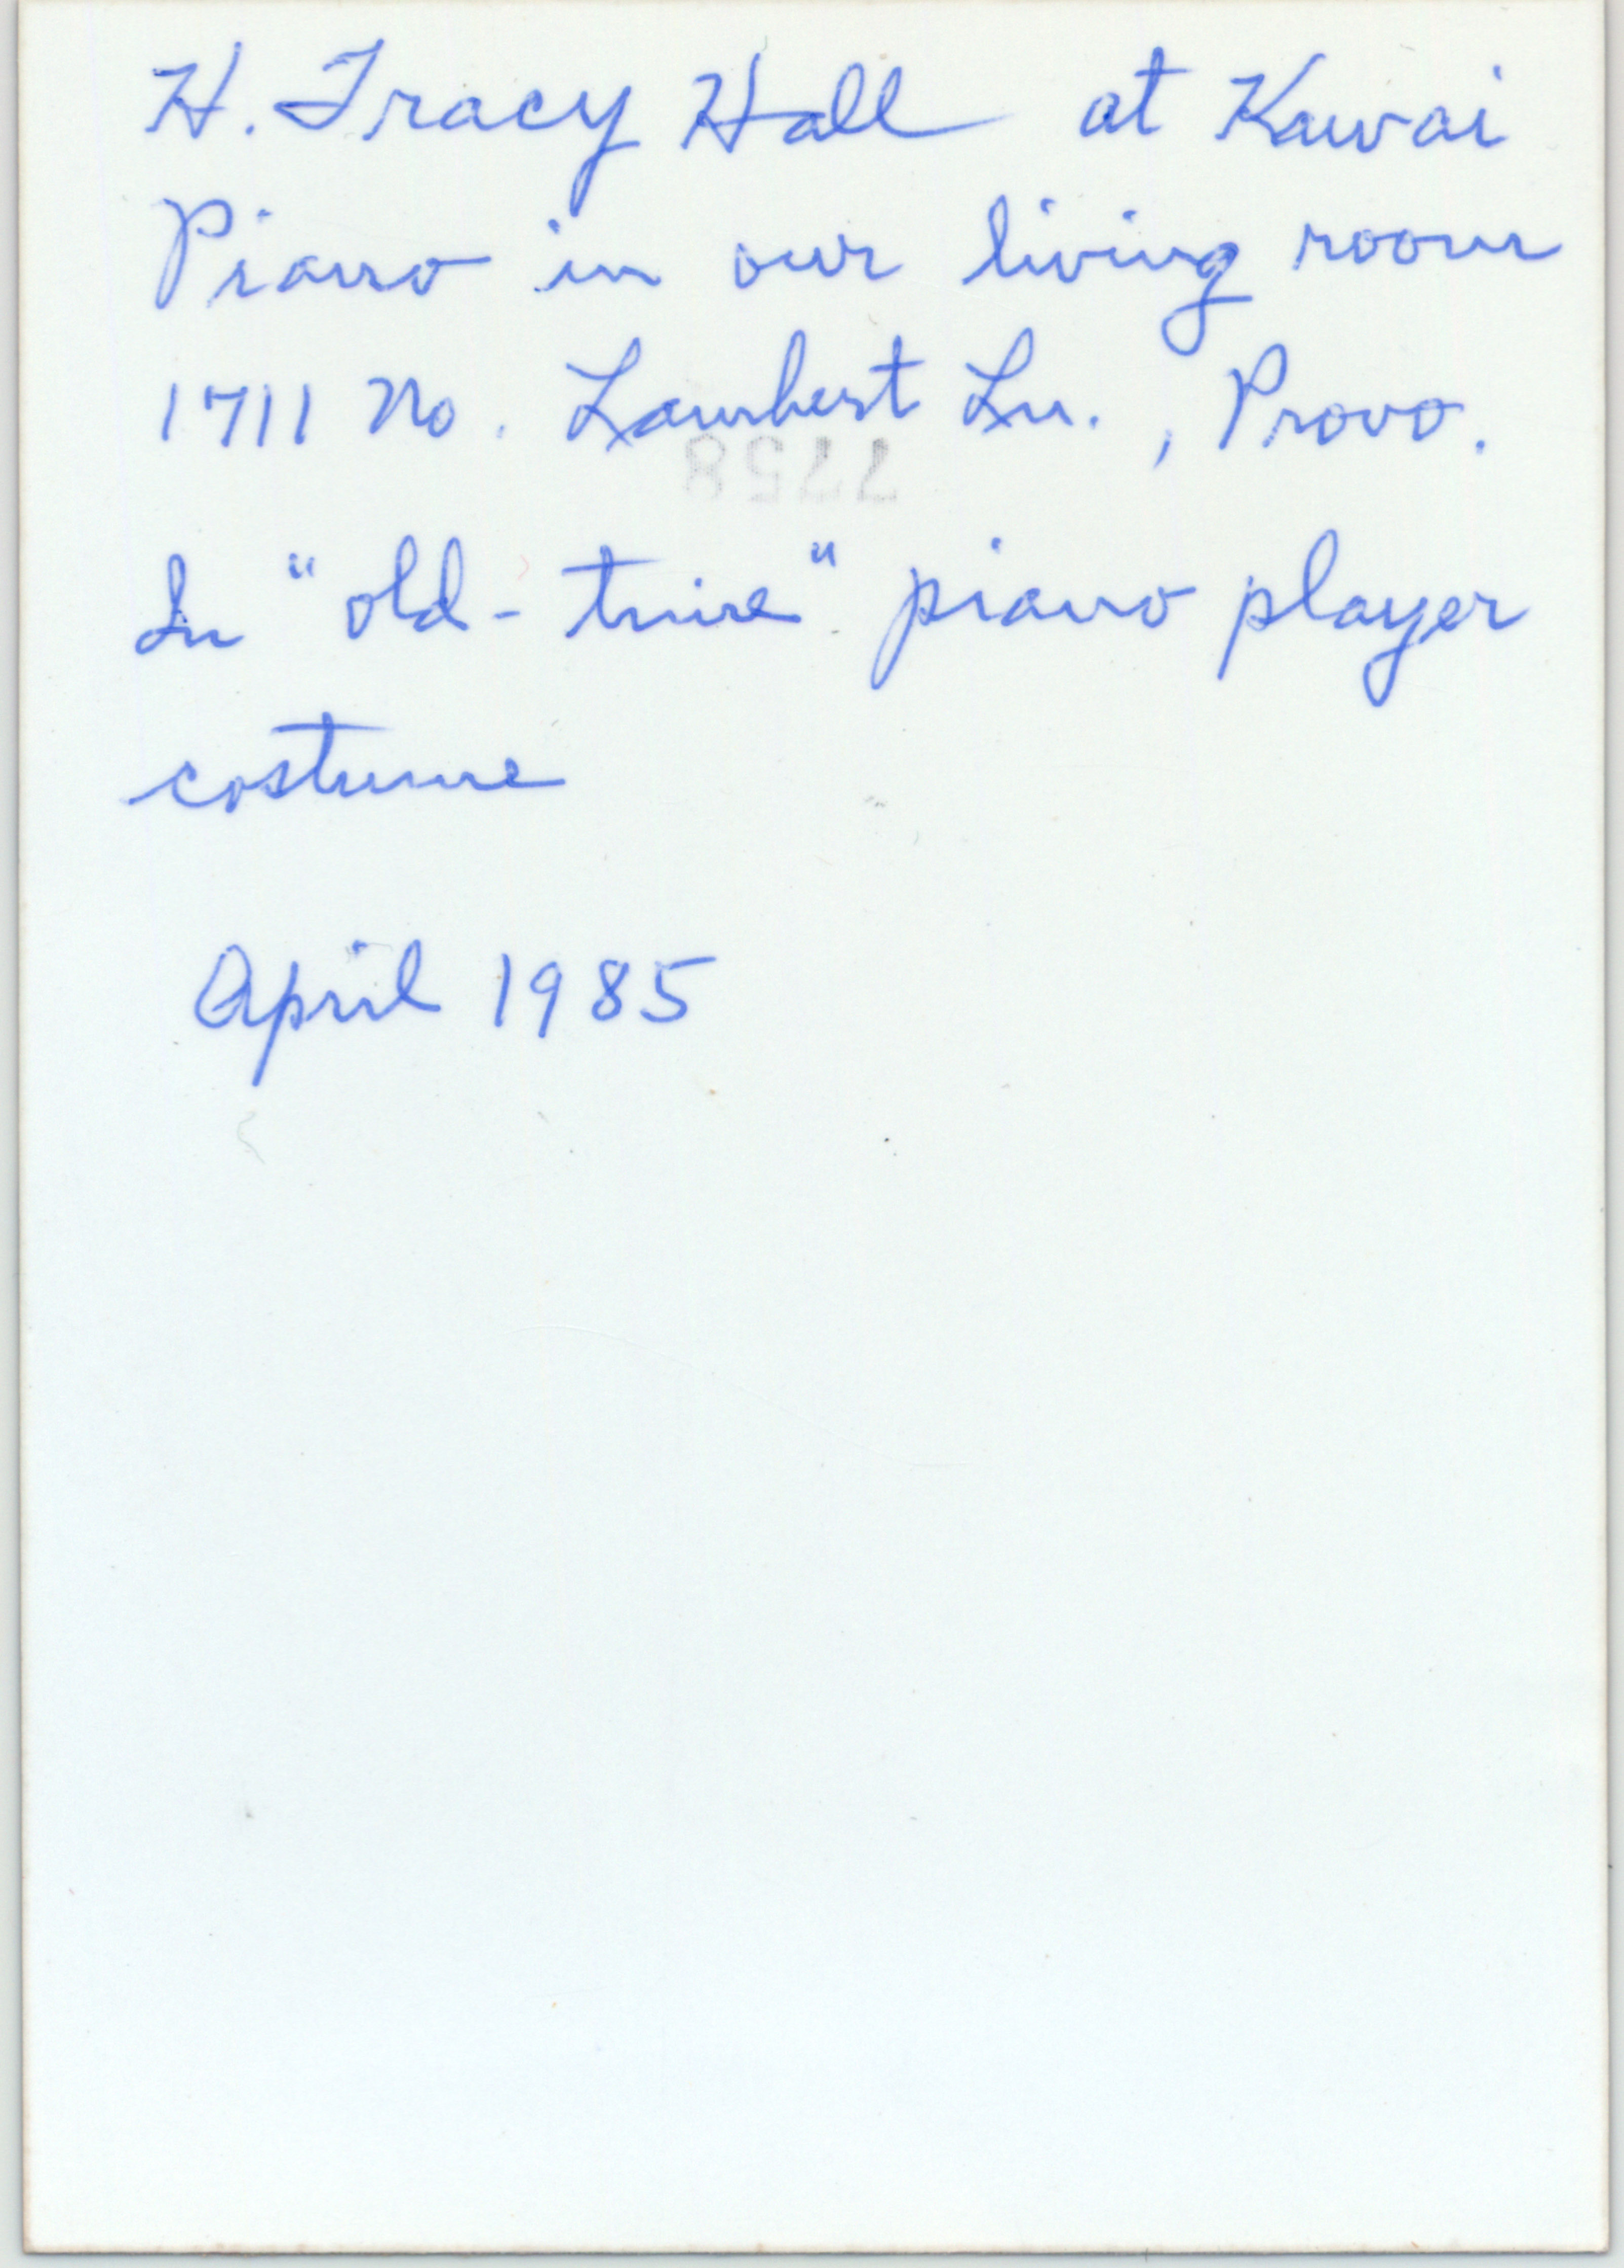 H. Tracy Hall at Kawai
Piano in our living room
1711 No. Lambert Ln., Provo.
7758
In "old-time" piano player
costume
April 1985